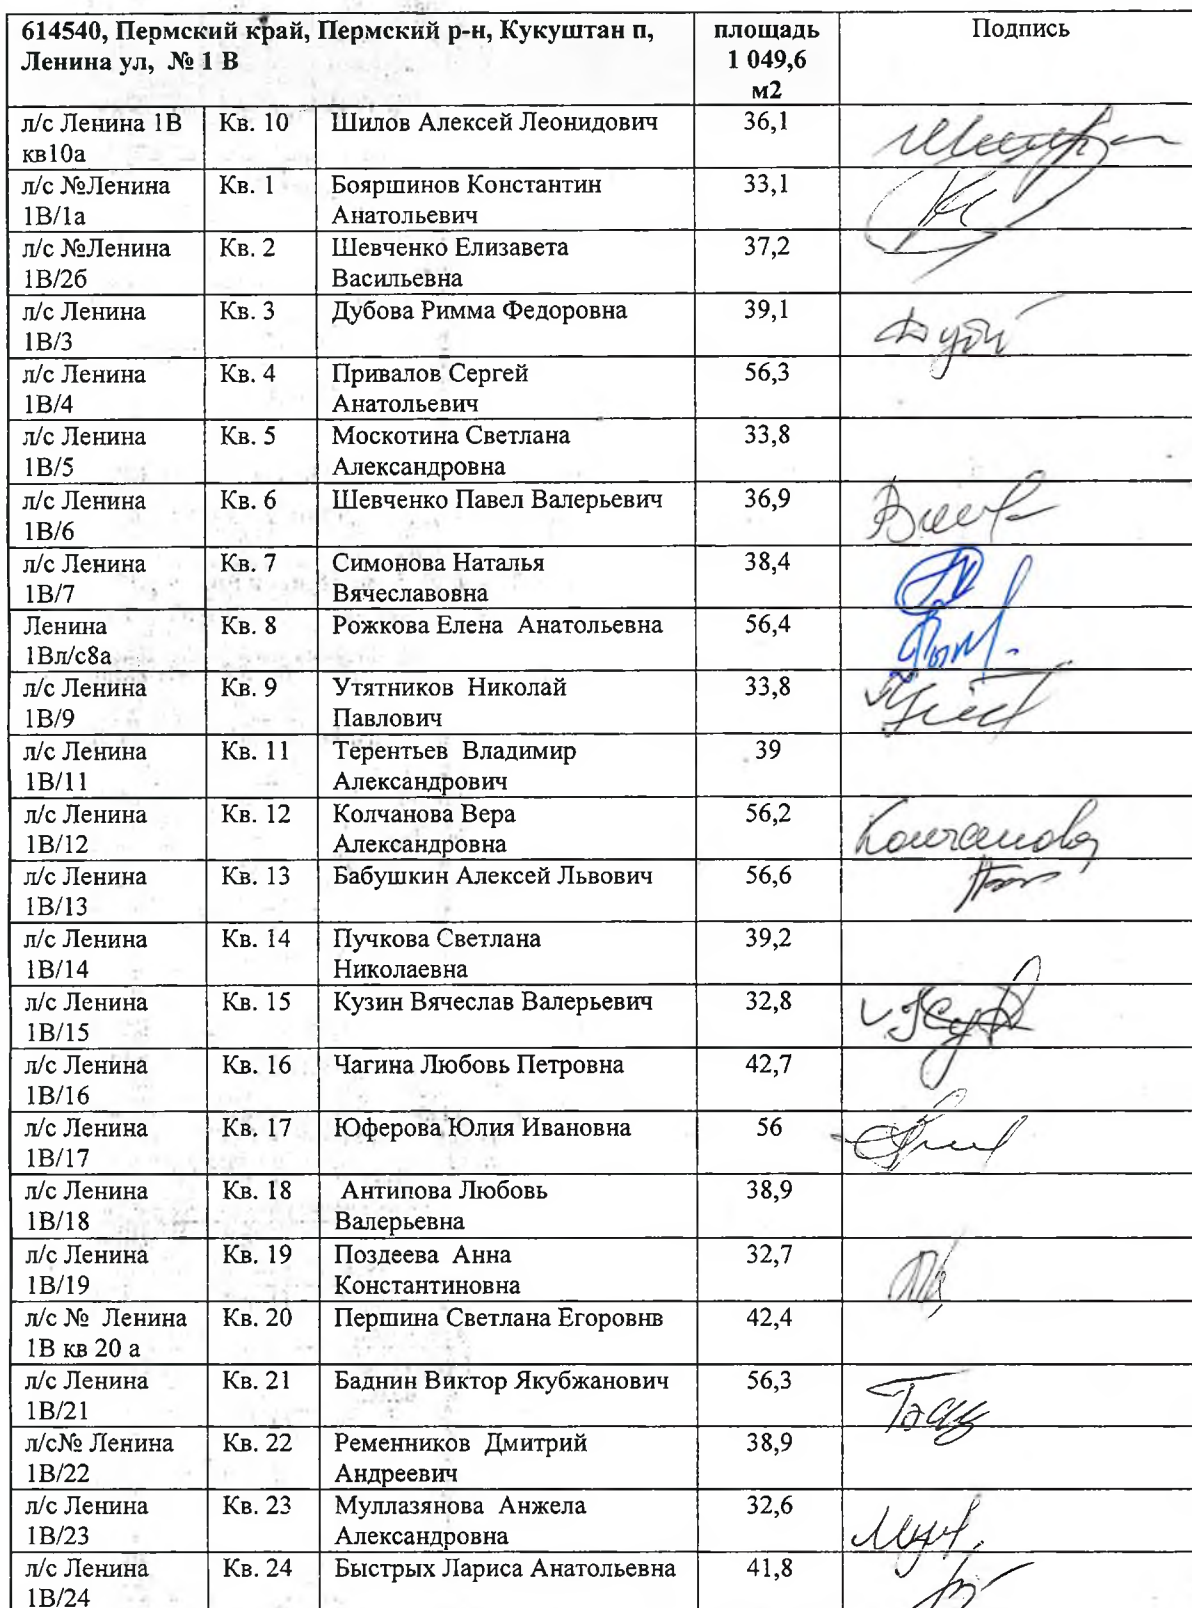 614540, Пермский край, Пермский р-н, Кукуштан п,
Ленина ул, № 1 В
площадь
1 049,6
м2
Подпись
л/с Ленина 1В
кв10а
Кв. 10
Шилов Алексей Леонидович
36,1
л/с №Ленина
1В/1а
Кв. 1
Бояршинов Константин
Анатольевич
33,1
л/с №Ленина
1В/2б
Кв. 2
Шевченко Елизавета
Васильевна
37,2
л/с Ленина
1В/3
Кв. 3
Дубова Римма Федоровна
39,1
л/с Ленина
1В/4
Кв. 4
Привалов Сергей
Анатольевич
56,3
л/с Ленина
1В/5
Кв. 5
Москотина Светлана
Александровна
33,8
л/с Ленина
1В/6
Кв. 6
Шевченко Павел Валерьевич
36,9
л/с Ленина
1В/7
Кв. 7
Симонова Наталья
Вячеславовна
38,4
Ленина
1Вл/с8а
Кв. 8
Рожкова Елена Анатольевна
56,4
л/с Ленина
1В/9
Кв. 9
Утятников Николай
Павлович
33,8
л/с Ленина
1В/11
Кв. 11
Терентьев Владимир
Александрович
39
л/с Ленина
1В/12
Кв. 12
Колчанова Вера
Александровна
56,2
Колчанова
л/с Ленина
1В/13
Кв. 13
Бабушкин Алексей Львович
56,6
л/с Ленина
1В/14
Кв. 14
Пучкова Светлана
Николаевна
39,2
л/с Ленина
1В/15
Кв. 15
Кузин Вячеслав Валерьевич
32,8
л/с Ленина
1В/16
Кв. 16
Чагина Любовь Петровна
42,7
л/с Ленина
1В/17
Кв. 17
Юферова Юлия Ивановна
56
л/с Ленина
1В/18
Кв. 18
Антипова Любовь
Валерьевна
38,9
л/с Ленина
1В/19
Кв. 19
Поздеева Анна
Константиновна
32,7
л/с № Ленина
1В кв 20 а
Кв. 20
Першина Светлана Егоровнв
42,4
л/с Ленина
1В/21
Кв. 21
Баднин Виктор Якубжанович
56,3
л/с№ Ленина
1В/22
Кв. 22
Ременников Дмитрий
Андреевич
38,9
л/с Ленина
1В/23
Кв. 23
Муллазянова Анжела
Александровна
32,6
л/с Ленина
1В/24
Кв. 24
Быстрых Лариса Анатольевна
41,8